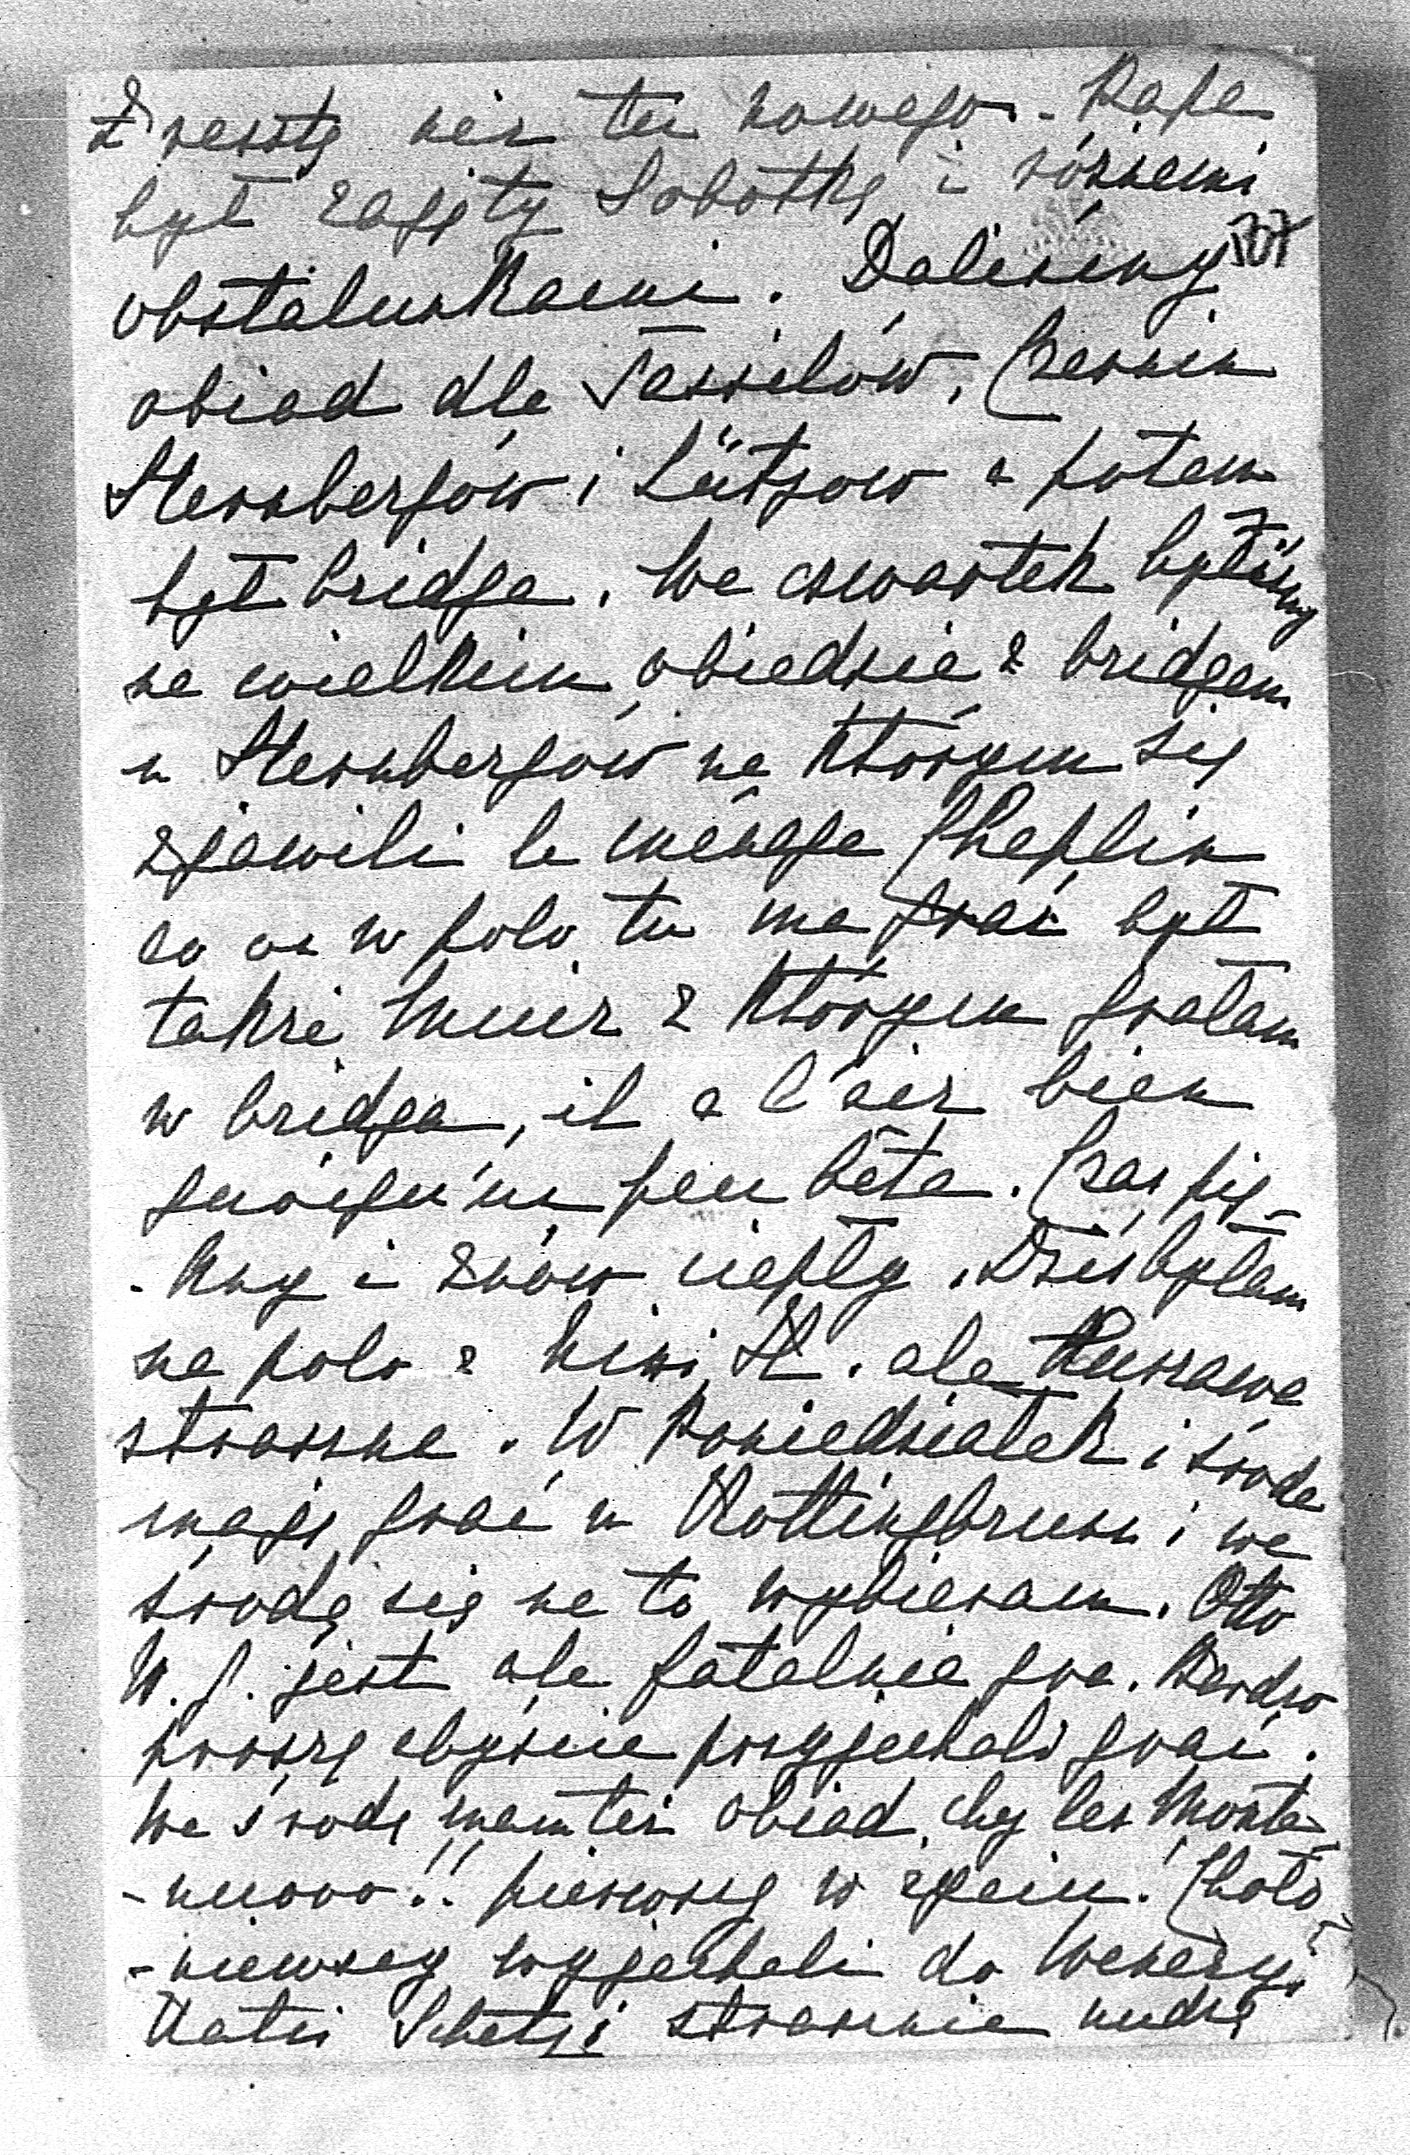 Z resztą nic tu nowego. Papa
był zajęty Sobotką i różnemi
107
obstalunkami. Daliśmy
obiad dla Tassilów, Czernin
Sternbergów i Lützow a potem
był bridge. We czwartek byliśmy
na wielkim obiedzie z bridgem
u Sternbergów na którym się
zjawili le ménage Chaplin
co on w polo tu ma grać był
także Muir z którym grałam
w bridga, il a l'air bien
quoiqu'un peu bête. Czas pię-
-kny i znów ciepły. Dziś byłam
na polo z Kiki St. ale Kurzawa
straszna. W Poniedziałek i środa
mają grać w Kottingbrunn i we
środę się na to wybieram. Otto
W. G. jest ale fatalnie gra. Bardzo
proszę abyście przyjechali grać.
We środę mam też obiad chez les Monte-
-nuovo!! pierwszy w życiu! Choło-
-niewscy wyjechali do Wenecyi
Katis Schetzi strasznie nudzą